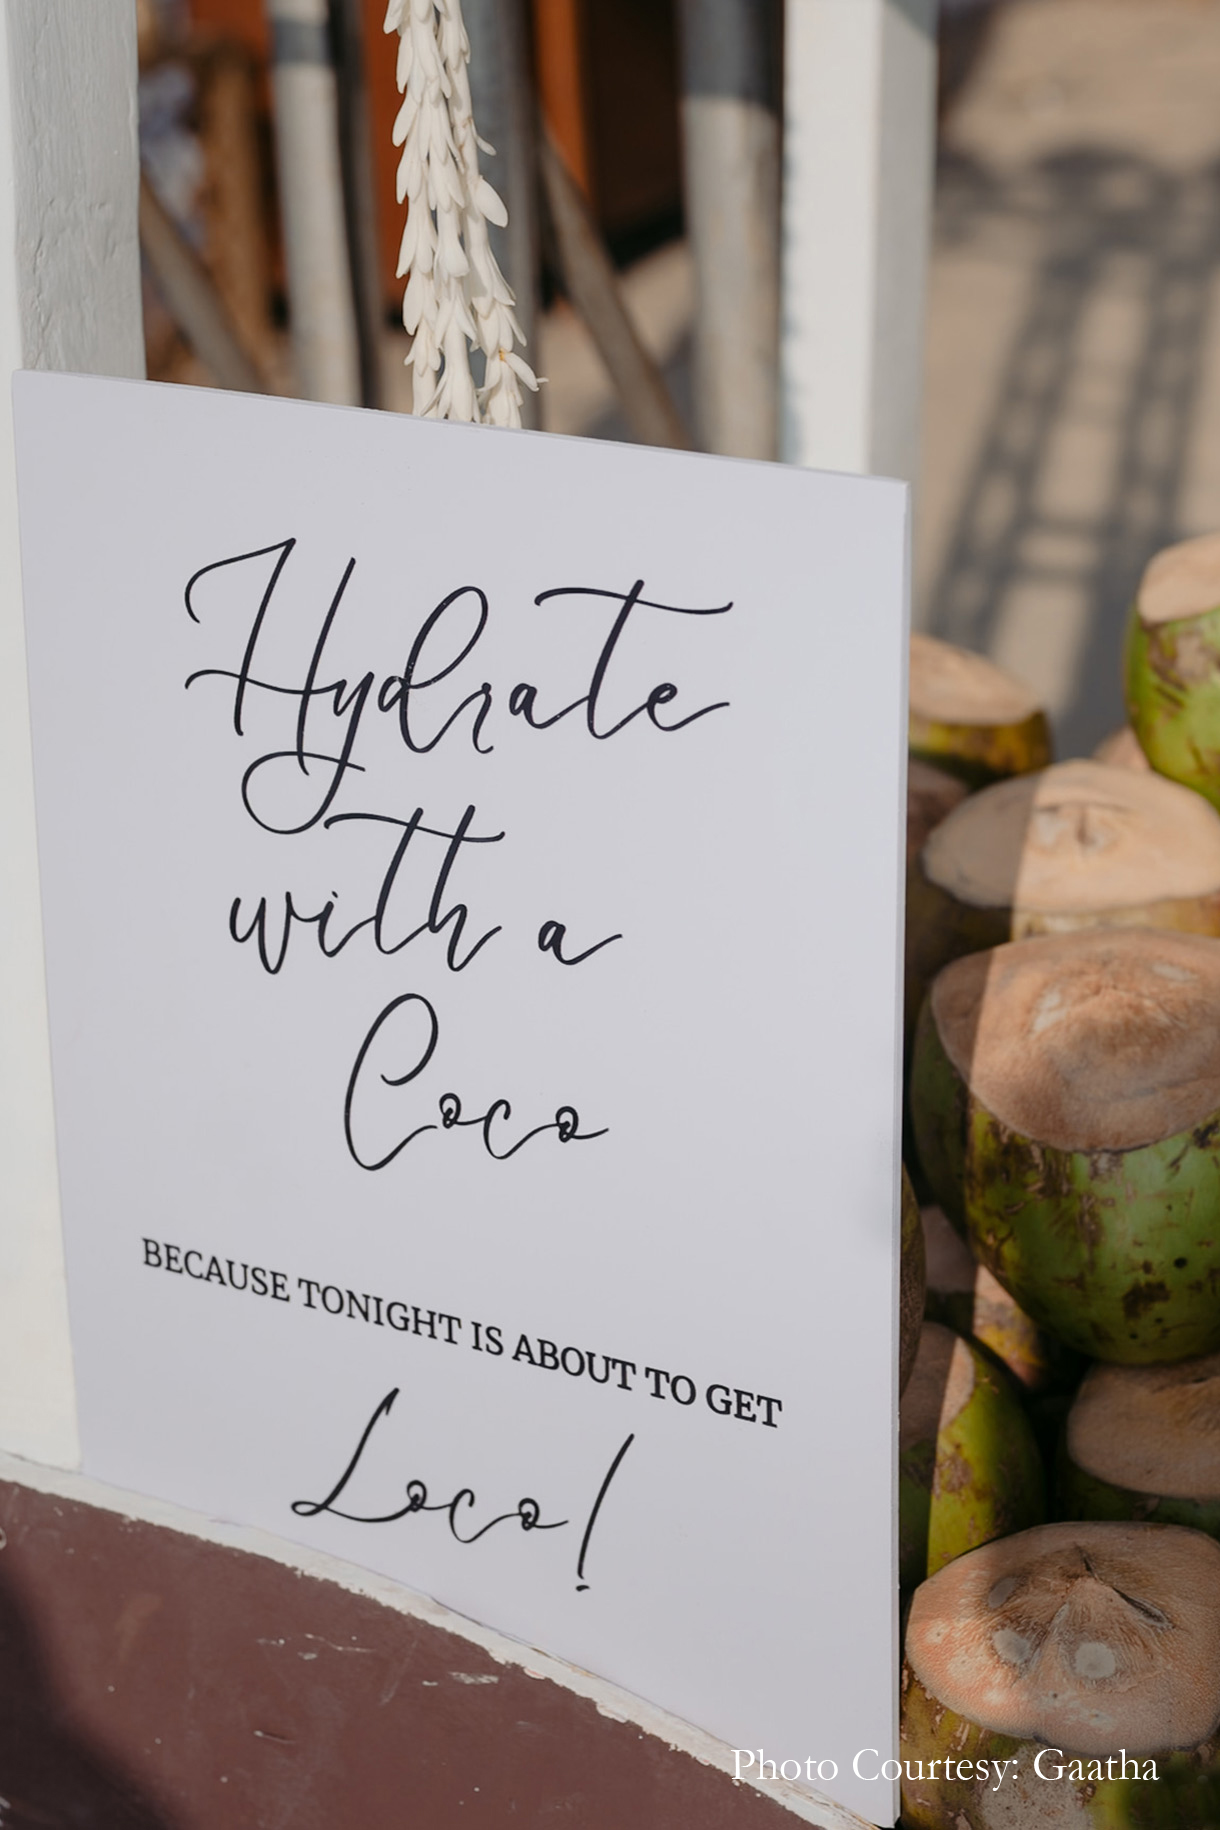 Hydrate
with a
Coco
BECAUSE TONIGHT IS ABOUT TO GET
Loco!
Photo Courtesy: Gaatha